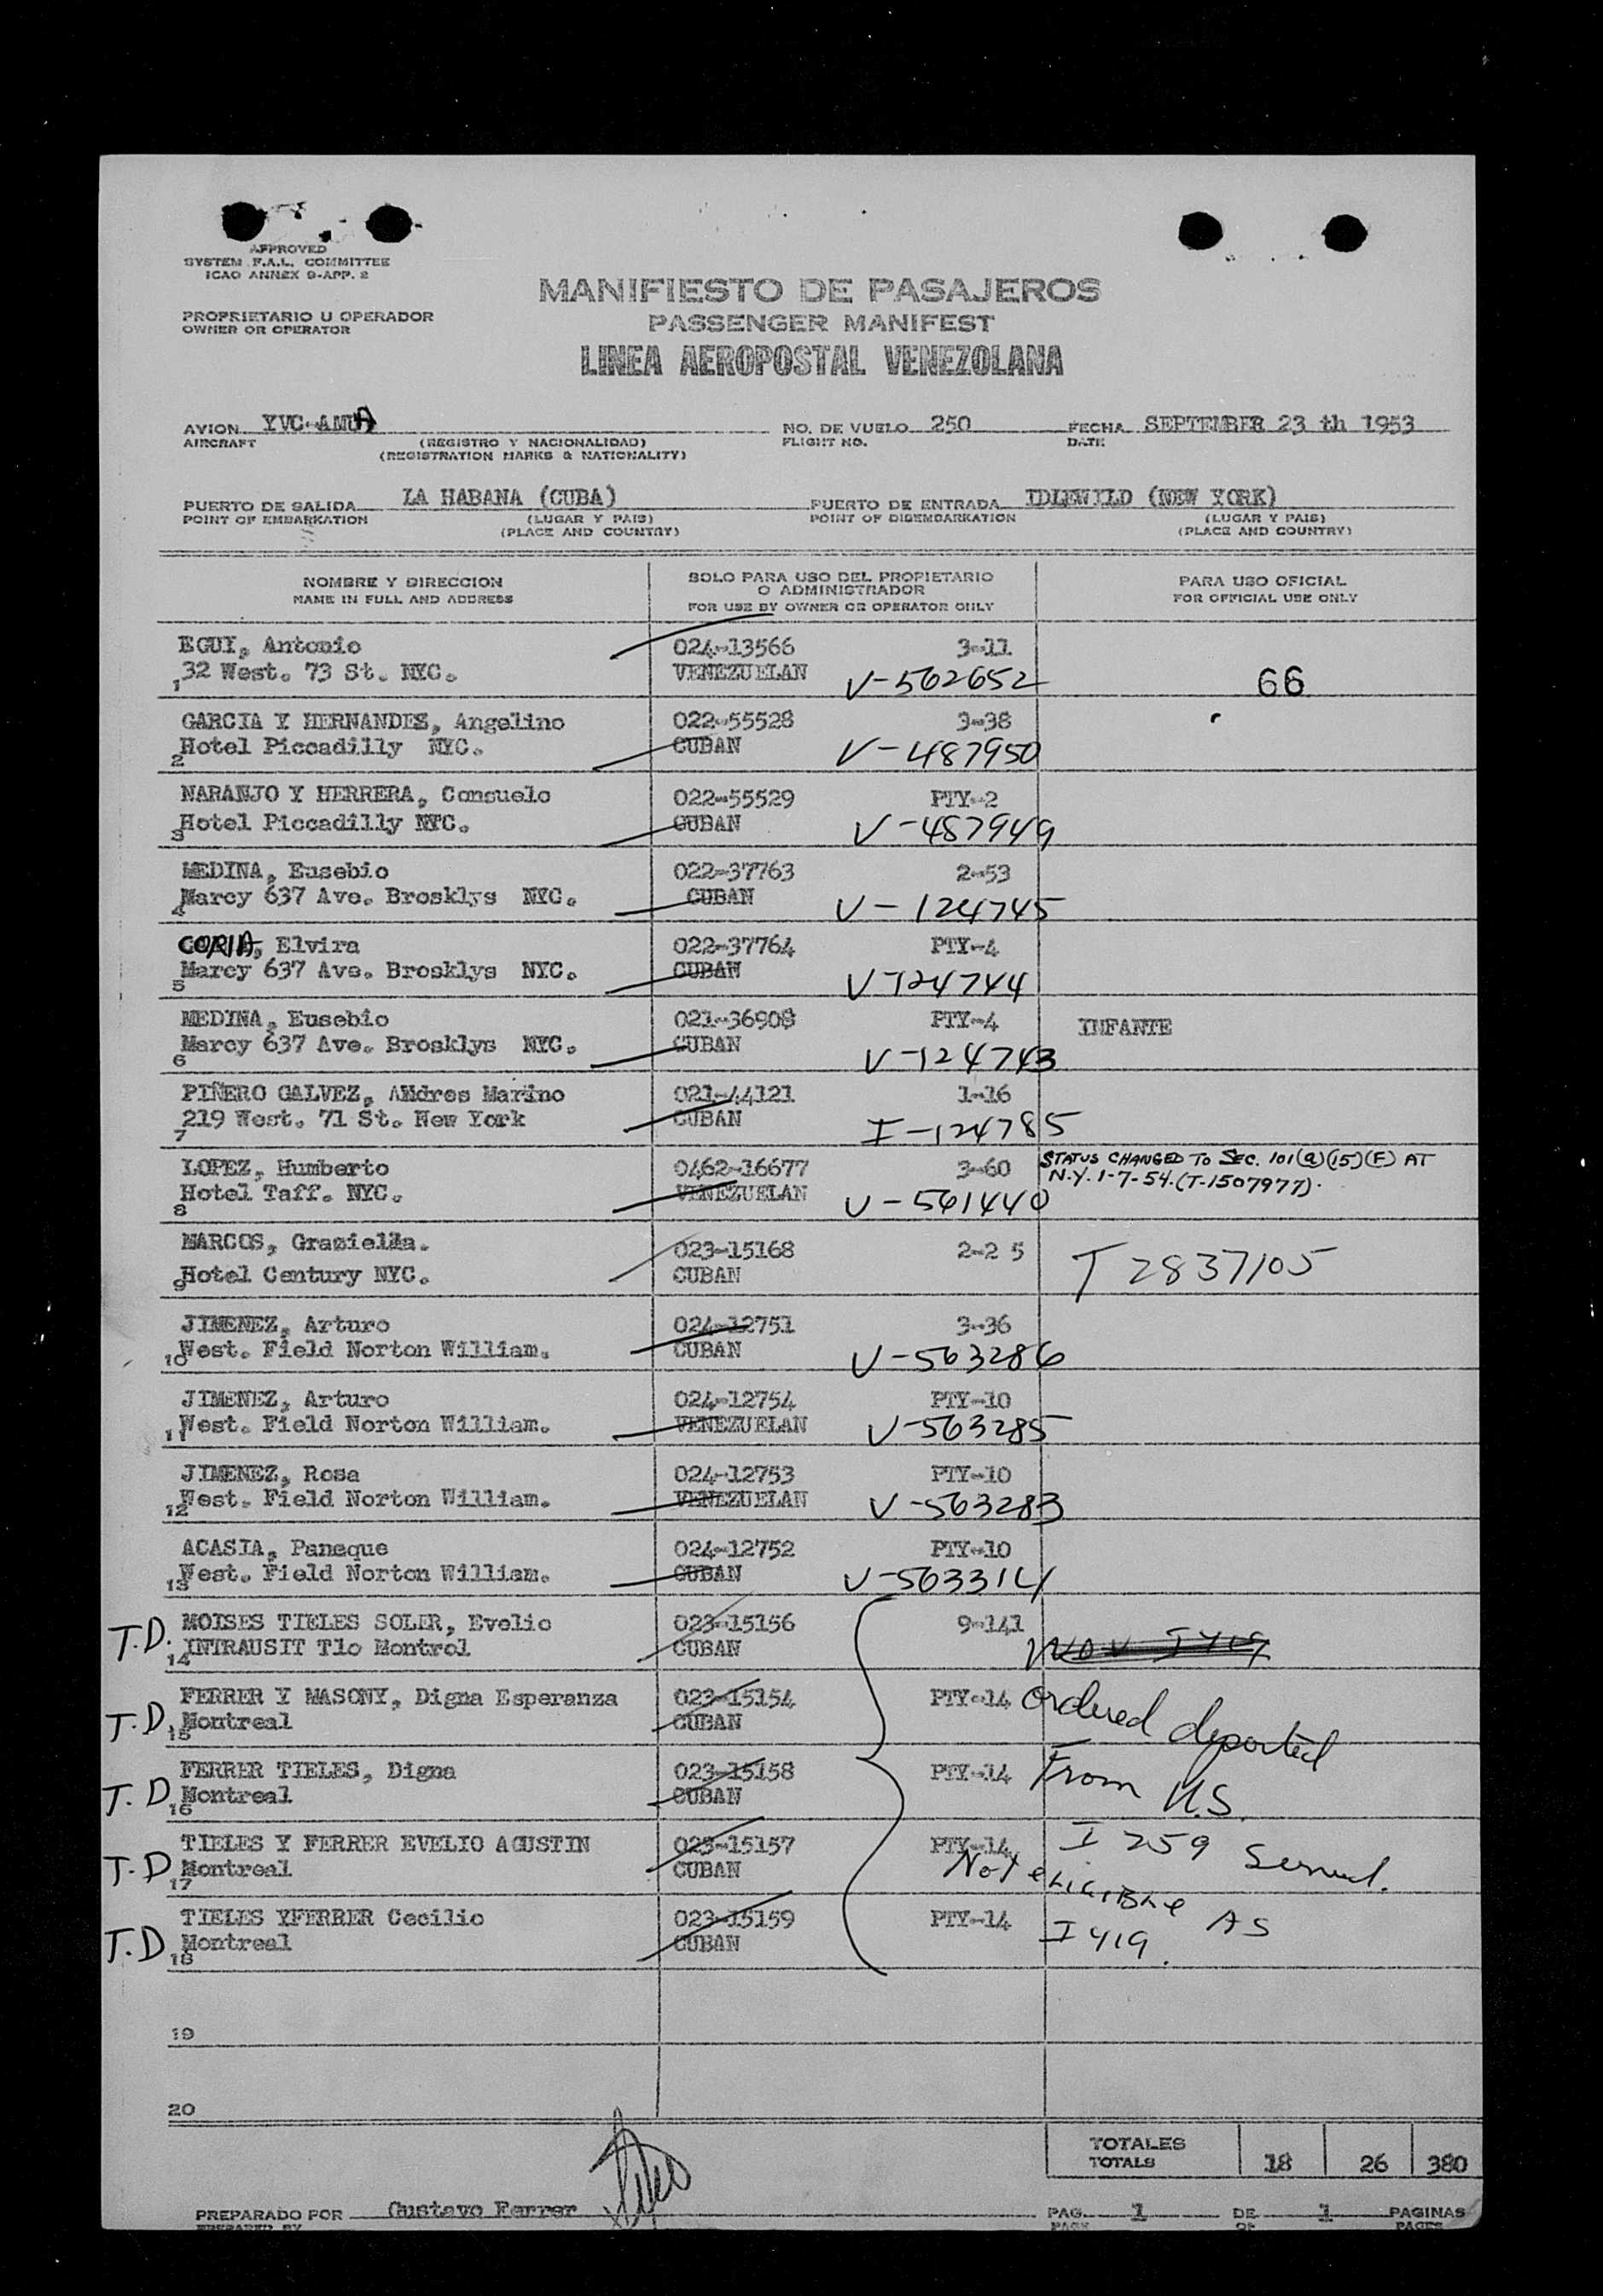 APPROVED
SYSTEM F.A.L. COMMITTEE
ICAO ANNEX 9-APP. 2
MANIFIESTO DE PASAJEROS
PROPRIETARIO U OPERADOR
OWNER OR OPERATOR
PASSENGER MANIFEST
LINEA AEROPOSTAL VENEZOLANA
AVION YVC-AMUA NO. DE VUELO 250 FECHA SEPTEMBER 23 th 1953
AIRCRAFT (REGISTRO Y NACIONALIDAD) FLIGHT NO. DATE
(REGISTRATION MARKS & NATIONALITY)
PUERTO DE SALIDA LA HABANA (CUBA) PUERTO DE ENTRADA IDLEWILD (NEW YORK)
POINT OF EMBARKATION (LUGAR Y PAIS) POINT OF DISEMBARKATION (LUGAR Y PAIS)
(PLACE AND COUNTRY) (PLACE AND COUNTRY)
NOMBRE Y DIRECCION SOLO PARA USO DEL PROPIETARIO PARA USO OFICIAL
O ADMINISTRADOR
NAME IN FULL AND ADDRESS FOR USE BY OWNER OR OPERATOR ONLY FOR OFFICIAL USE ONLY
EGUI, Antonio 024-13566 3-11
1 32 West. 73 St. NYC. VENEZUELAN V-562652 66
GARCIA Y HERNANDEZ, Angelino 022-55528 3-38
2 Hotel Piccadilly NYC. CUBAN V-487950
NARANJO Y HERRERA, Consuelo 022-55529 PTY-2
3 Hotel Piccadilly NYC. CUBAN V-487949
MEDINA, Eusebio 022-37763 2-53
4 Marcy 637 Ave. Brosklys NYC. CUBAN V-124745
CORIA, Elvira 022-37764 PTY-4
5 Marcy 637 Ave. Brosklys NYC. CUBAN V-124744
MEDINA, Eusebio 021-36908 PTY-4 INFANTE
6 Marcy 637 Ave. Brosklys NYC. CUBAN V-124743
PIÑERO GALVEZ, ANdres Marino 021-44121 1-16
7 219 West. 71 St. New York CUBAN I-124785
LOPEZ, Humberto 0462-16677 3-60 STATUS CHANGED TO SEC. 101(a)(15)(F) AT
8 Hotel Taff. NYC. VENEZUELAN V-561440 N.Y. 1-7-54. (T-1507977).
MARCOS, Graziella. 023-15168 2-2 5 T 2837105
9 Hotel Century NYC. CUBAN
JIMENEZ, Arturo 024-12751 3-36
10 West. Field Norton William. CUBAN V-563286
JIMENEZ, Arturo 024-12754 PTY-10
11 West. Field Norton William. VENEZUELAN V-563285
JIMENEZ, Rosa 024-12753 PTY-10
12 West. Field Norton William. VENEZUELAN V-563283
ACASIA, Panaque 024-12752 PTY-10
13 West. Field Norton William. CUBAN V-563314
T.D. MOISES TIELES SOLER, Evelio 023-15156 9-141
14 INTRAUSIT Tlo Montrol CUBAN
FERRER Y MASONY, Digna Esperanza 023-15154 PTY-14 Ordered deported
T.D. 15 Montreal CUBAN
FERRER TIELES, Digna 023-15158 PTY-14 From U.S.
T.D. 16 Montreal CUBAN
TIELES Y FERRER EVELIO AGUSTIN 023-15157 PTY-14 I 259 Served.
T.D. 17 Montreal CUBAN Not eligible AS
TIELES YFERRER Cecilio 023-15159 PTY-14 I 419.
T.D. 18 Montreal CUBAN
19
20
TOTALES
TOTALS 18 26 380
PREPARADO POR Gustavo Ferrer PAG. 1 DE 1 PAGINAS
PREPARED BY PAGE OF PAGES